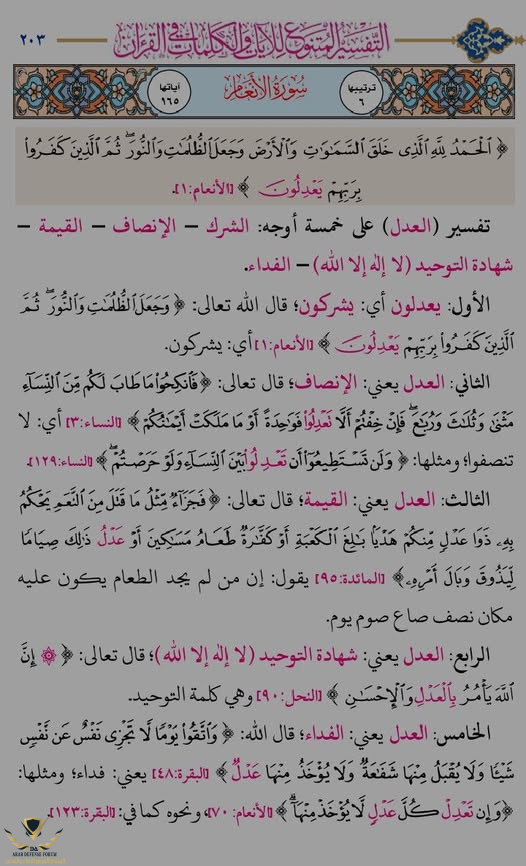 التفسير المتنوع للآيات والكلمات في القرآن
٢٠٣
ترتيبها
٦
سورة الأنعام
آياتها
١٦٥
﴿ ٱلۡحَمۡدُ لِلَّهِ ٱلَّذِي خَلَقَ ٱلسَّمَٰوَٰتِ وَٱلۡأَرۡضَ وَجَعَلَ ٱلظُّلُمَٰتِ وَٱلنُّورَۖ ثُمَّ ٱلَّذِينَ كَفَرُواْ
بِرَبِّهِمۡ يَعۡدِلُونَ ﴾ [الأنعام:١].
تفسير (العدل) على خمسة أوجه: الشرك – الإنصاف – القيمة –
شهادة التوحيد (لا إله إلا الله) – الفداء.
الأول: يعدلون أي: يشركون؛ قال الله تعالى: ﴿ وَجَعَلَ ٱلظُّلُمَٰتِ وَٱلنُّورَۖ ثُمَّ
ٱلَّذِينَ كَفَرُواْ بِرَبِّهِمۡ يَعۡدِلُونَ ﴾ [الأنعام:١] أي: يشركون.
الثاني: العدل يعني: الإنصاف؛ قال تعالى: ﴿ فَٱنكِحُواْ مَا طَابَ لَكُم مِّنَ ٱلنِّسَآءِ
مَثۡنَىٰ وَثُلَٰثَ وَرُبَٰعَۖ فَإِنۡ خِفۡتُمۡ أَلَّا تَعۡدِلُواْ فَوَٰحِدَةً أَوۡ مَا مَلَكَتۡ أَيۡمَٰنُكُمۡ ﴾ [النساء:٣] أي: لا
تنصفوا؛ ومثلها: ﴿ وَلَن تَسۡتَطِيعُوٓاْ أَن تَعۡدِلُواْ بَيۡنَ ٱلنِّسَآءِ وَلَوۡ حَرَصۡتُمۡۖ ﴾ [النساء:١٢٩].
الثالث: العدل يعني: القيمة؛ قال تعالى: ﴿ فَجَزَآءٞ مِّثۡلُ مَا قَتَلَ مِنَ ٱلنَّعَمِ يَحۡكُمُ
بِهِۦ ذَوَا عَدۡلٖ مِّنكُمۡ هَدۡيَۢا بَٰلِغَ ٱلۡكَعۡبَةِ أَوۡ كَفَّٰرَةٞ طَعَامُ مَسَٰكِينَ أَوۡ عَدۡلُ ذَٰلِكَ صِيَامٗا
لِّيَذُوقَ وَبَالَ أَمۡرِهِۦ ﴾ [المائدة:٩٥] يقول: إن من لم يجد الطعام يكون عليه
مكان نصف صاع صوم يوم.
الرابع: العدل يعني: شهادة التوحيد (لا إله إلا الله)؛ قال تعالى: ﴿ ۞ إِنَّ
ٱللَّهَ يَأۡمُرُ بِٱلۡعَدۡلِ وَٱلۡإِحۡسَٰنِ ﴾ [النحل:٩٠] وهي كلمة التوحيد.
الخامس: العدل يعني: الفداء؛ قال الله: ﴿ وَٱتَّقُواْ يَوۡمٗا لَّا تَجۡزِي نَفۡسٌ عَن نَّفۡسٖ
شَيۡـٔٗا وَلَا يُقۡبَلُ مِنۡهَا شَفَٰعَةٞ وَلَا يُؤۡخَذُ مِنۡهَا عَدۡلٞ ﴾ [البقرة:٤٨] يعني: فداء؛ ومثلها:
﴿ وَإِن تَعۡدِلۡ كُلَّ عَدۡلٖ لَّا يُؤۡخَذۡ مِنۡهَآۗ ﴾ [الأنعام:٧٠]، ونحوه كما في: [البقرة:١٢٣].
ARAB DEFENSE FORUM